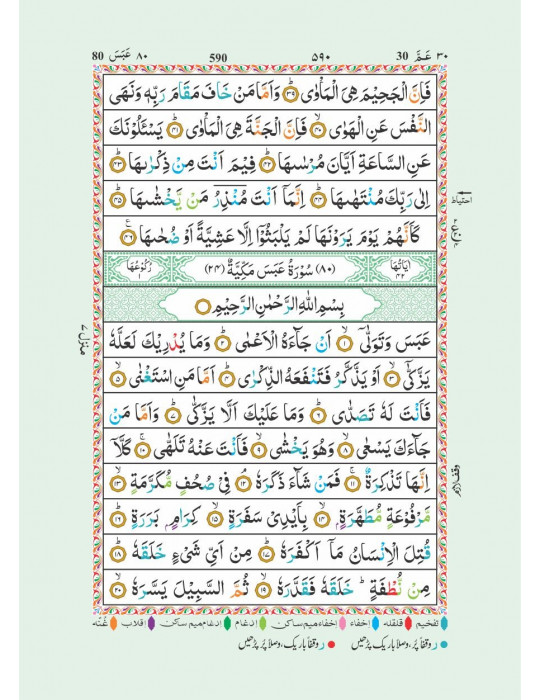 ٣٠ عَمَّ 30 ٥٩٠ 590 ٨٠ عَبَسَ 80
فَاِنَّ الْجَحِيْمَ هِيَ الْمَاْوٰى ﴿٣٩﴾ وَاَمَّا مَنْ خَافَ مَقَامَ رَبِّهٖ وَنَهَى
النَّفْسَ عَنِ الْهَوٰى ﴿٤٠﴾ فَاِنَّ الْجَنَّةَ هِيَ الْمَاْوٰى ﴿٤١﴾ يَسْئَلُوْنَكَ
عَنِ السَّاعَةِ اَيَّانَ مُرْسٰىهَا ﴿٤٢﴾ فِيْمَ اَنْتَ مِنْ ذِكْرٰىهَا ﴿٤٣﴾
اِلٰى رَبِّكَ مُنْتَهٰىهَا ﴿٤٤﴾ اِنَّمَاۤ اَنْتَ مُنْذِرُ مَنْ يَّخْشٰىهَا ﴿٤٥﴾
كَاَنَّهُمْ يَوْمَ يَرَوْنَهَا لَمْ يَلْبَثُوْۤا اِلَّا عَشِيَّةً اَوْ ضُحٰىهَا ﴿٤٦﴾
اٰيَاتُهَا ٤٢ (٨٠) سُوْرَةُ عَبَسَ مَكِّيَّةٌ (٢٤) رُكُوْعُهَا ١
بِسْمِ اللهِ الرَّحْمٰنِ الرَّحِيْمِ
عَبَسَ وَتَوَلّٰىۤ ﴿١﴾ اَنْ جَآءَهُ الْاَعْمٰى ﴿٢﴾ وَمَا يُدْرِيْكَ لَعَلَّهٗ
يَزَّكّٰىۤ ﴿٣﴾ اَوْ يَذَّكَّرُ فَتَنْفَعَهُ الذِّكْرٰى ﴿٤﴾ اَمَّا مَنِ اسْتَغْنٰى ﴿٥﴾
فَاَنْتَ لَهٗ تَصَدّٰى ﴿٦﴾ وَمَا عَلَيْكَ اَلَّا يَزَّكّٰى ﴿٧﴾ وَاَمَّا مَنْ
جَآءَكَ يَسْعٰى ﴿٨﴾ وَهُوَ يَخْشٰى ﴿٩﴾ فَاَنْتَ عَنْهُ تَلَهّٰى ﴿١٠﴾ كَلَّاۤ
اِنَّهَا تَذْكِرَةٌ ﴿١١﴾ فَمَنْ شَآءَ ذَكَرَهٗ ﴿١٢﴾ فِيْ صُحُفٍ مُّكَرَّمَةٍ ﴿١٣﴾
مَّرْفُوْعَةٍ مُّطَهَّرَةٍ ﴿١٤﴾ بِاَيْدِيْ سَفَرَةٍ ﴿١٥﴾ كِرَامٍ بَرَرَةٍ ﴿١٦﴾
قُتِلَ الْاِنْسَانُ مَاۤ اَكْفَرَهٗ ﴿١٧﴾ مِنْ اَيِّ شَيْءٍ خَلَقَهٗ ﴿١٨﴾
مِنْ نُّطْفَةٍ خَلَقَهٗ فَقَدَّرَهٗ ﴿١٩﴾ ثُمَّ السَّبِيْلَ يَسَّرَهٗ ﴿٢٠﴾
احتیاط
منزل ٧
وقف لازم
تفخیم قلقله اخفاء اخفاء میم ساکن ادغام ادغام میم ساکن اقلاب غُنّه
ر وقفاً پُر، وصلاً باریک پڑھیں ر وقفاً باریک، وصلاً پُر پڑھیں